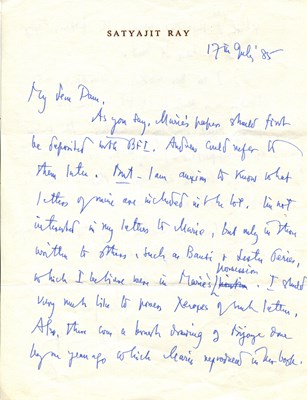 SATYAJIT RAY
17th July '85
My dear Dam,
As you say, Marie's papers should first
be deposited with BFI. Andrew could refer to
them later. But — I am anxious to know what
letters of mine are included in the lot. I'm not
interested in my letters to Marie, but only in those
written to others, such as Bansi & Lester Peries,
which I believe were in Marie's possession. I should
very much like to possess Xeroxes of such letters.
Also, there was a brush drawing of Bijoya done
by me years ago which Marie reproduced in her book.